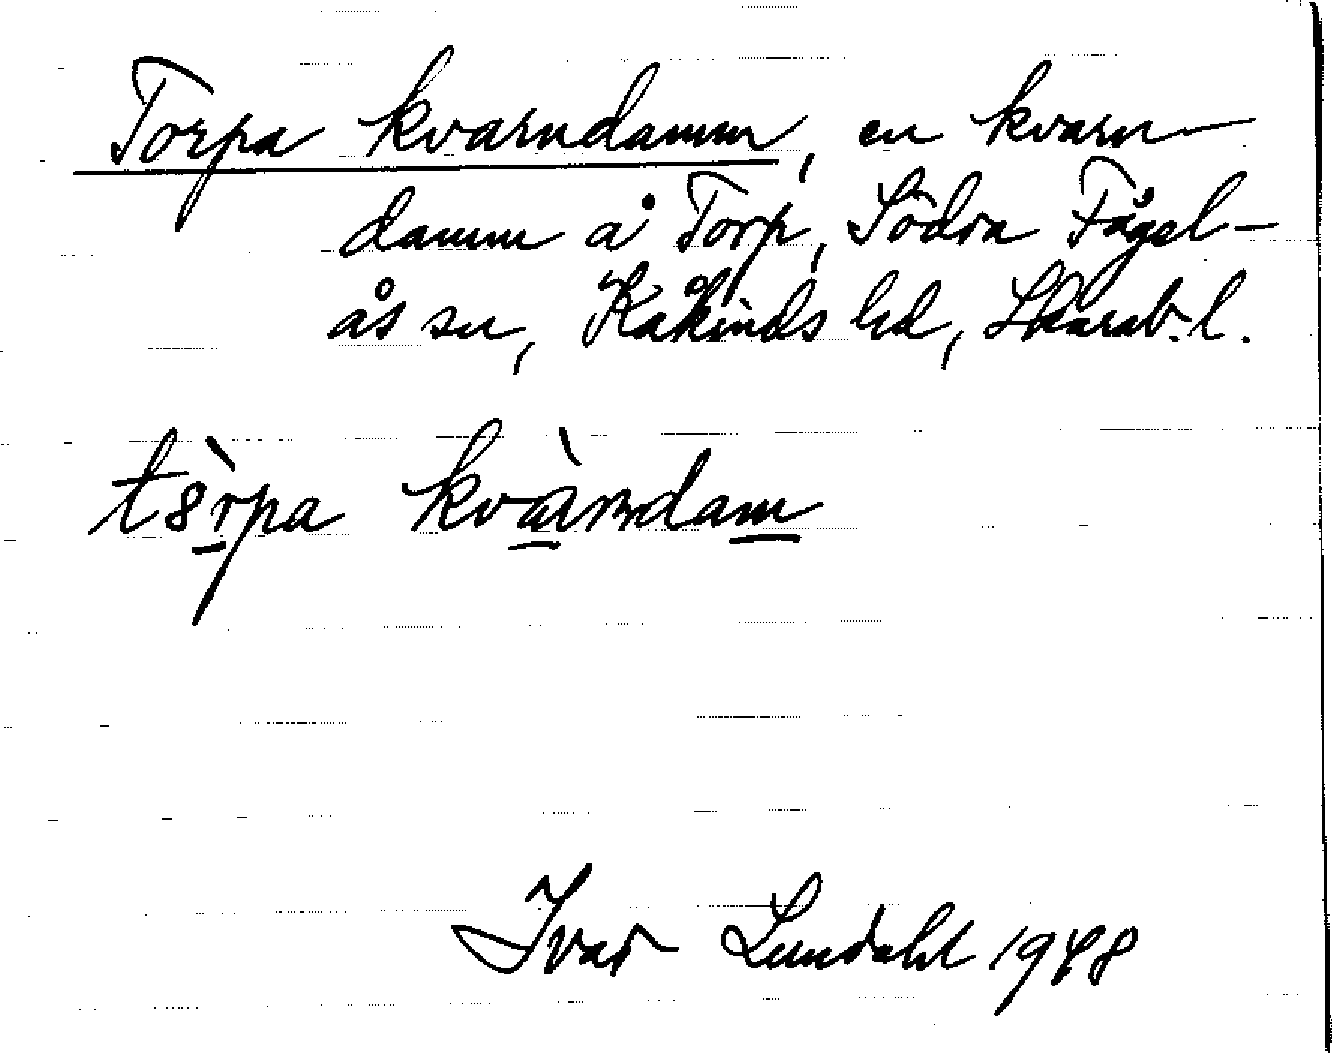 Torpa kvarndamm, en kvarn-
damm å Torp, Södra Fågel-
ås sn, Kåkinds hd, Skarab. l.
t8̀rpa kvàrndam
Ivar Lundahl 1948